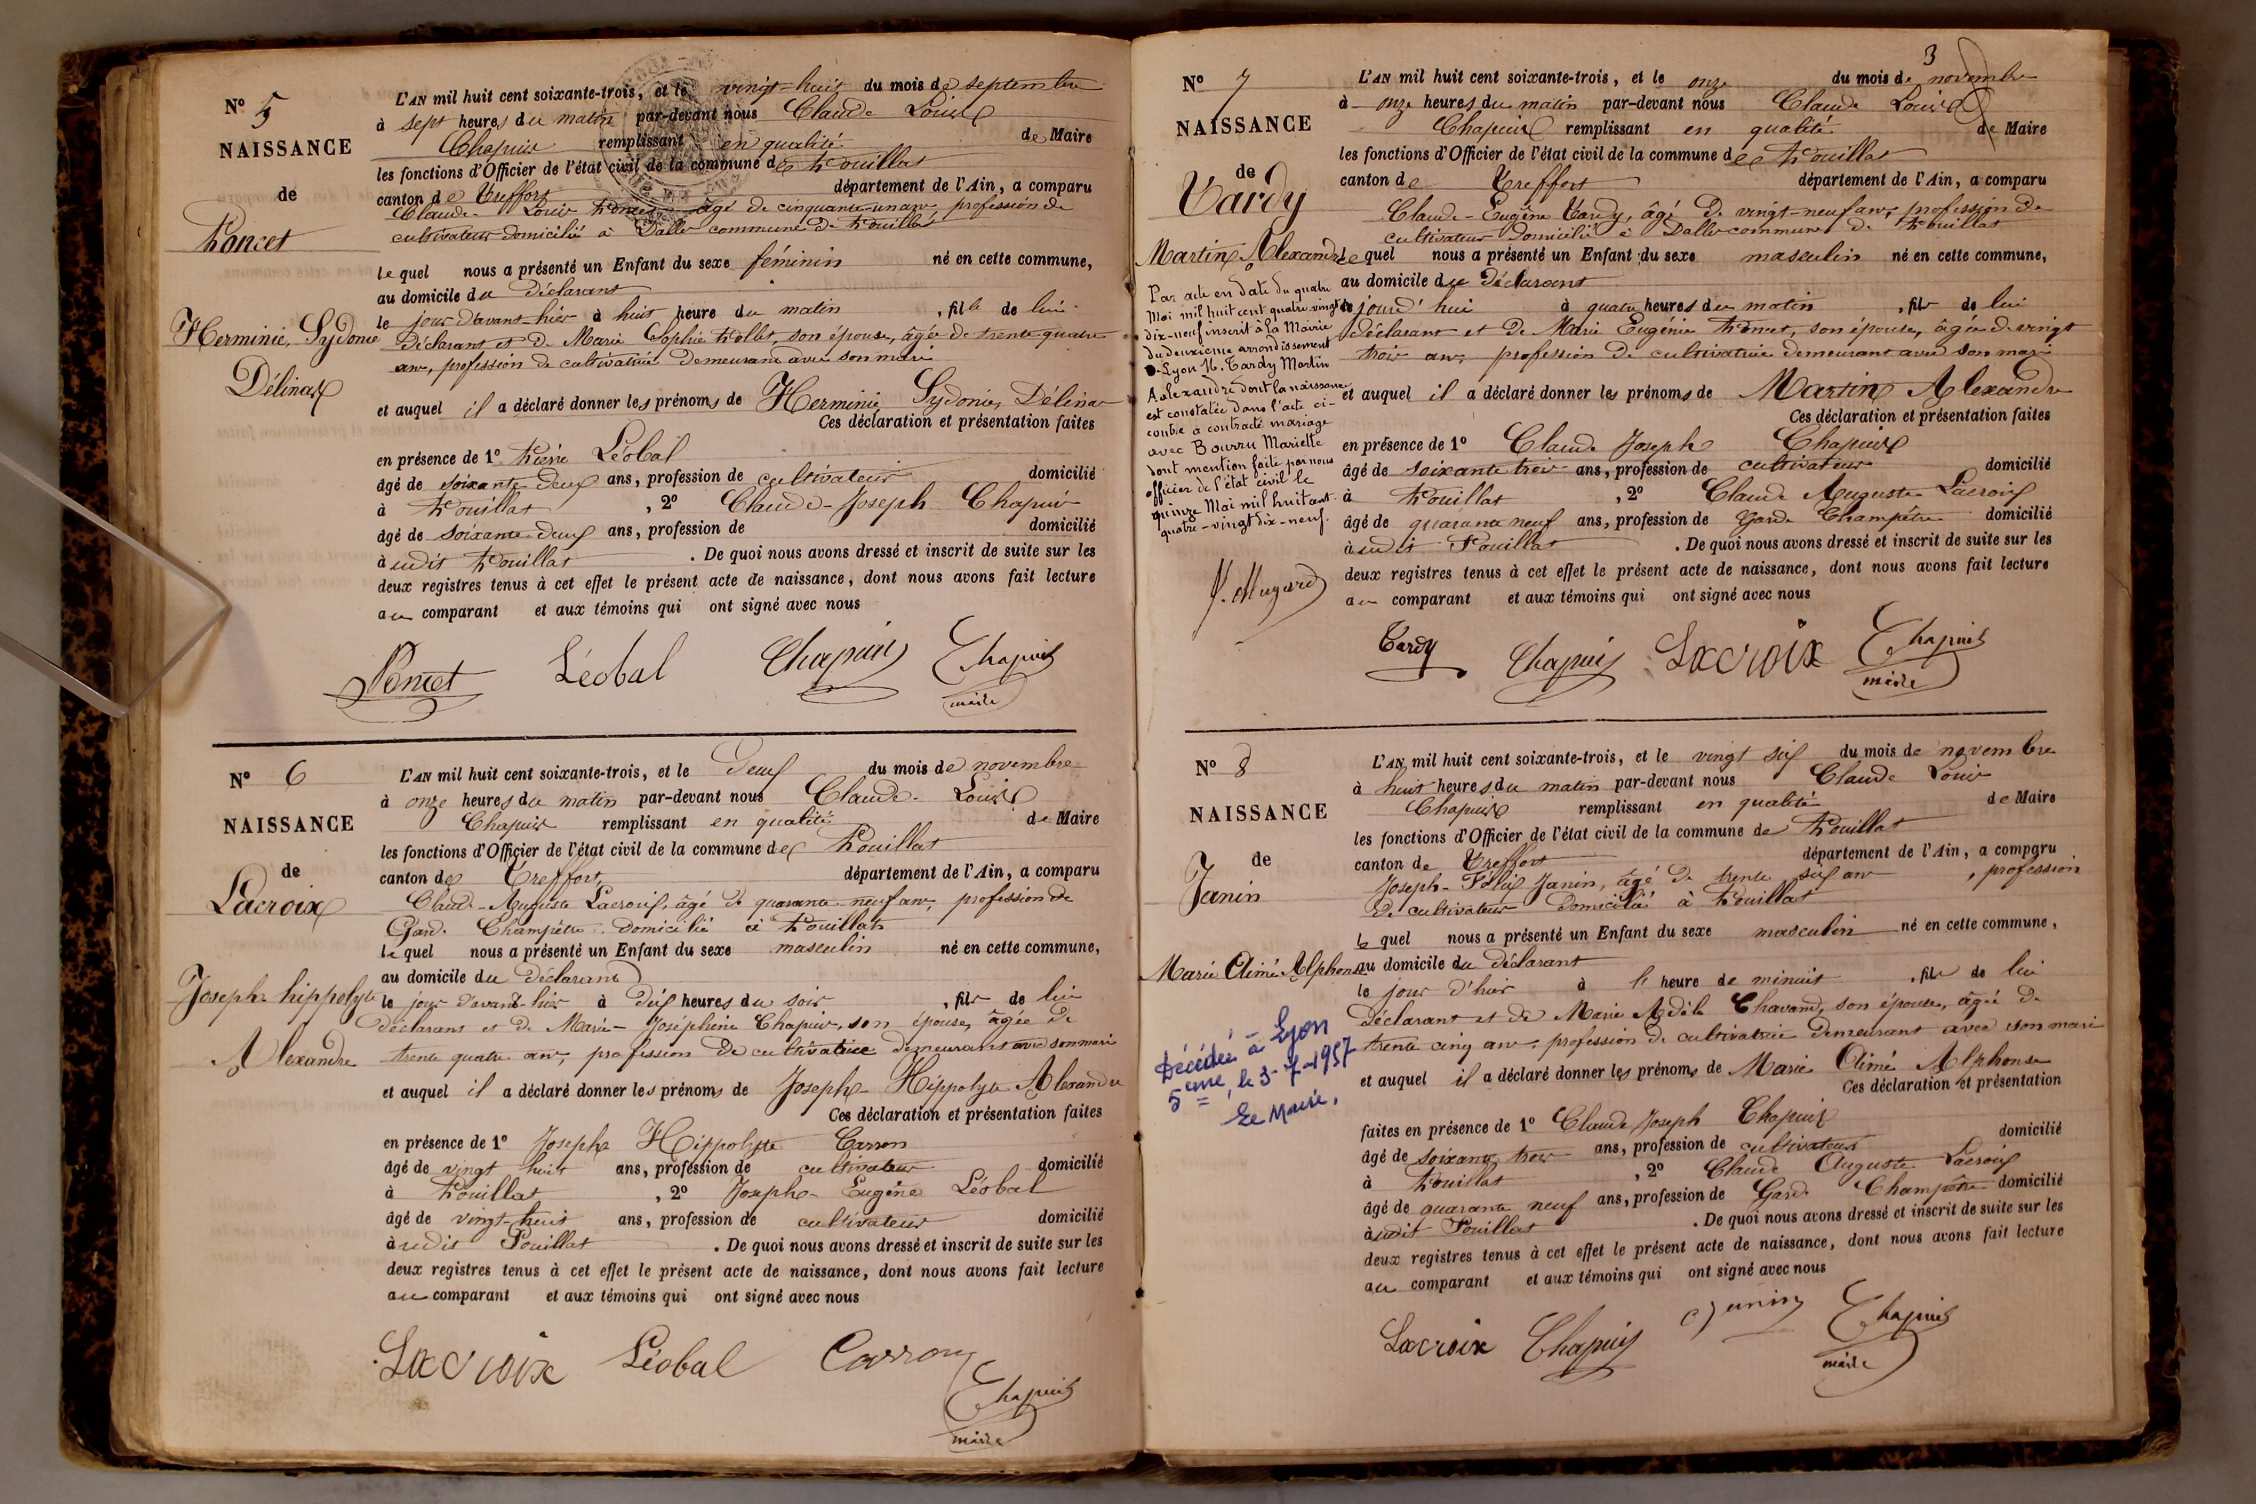 Nº 5
NAISSANCE
de
Poncet
Herminie, Sydonie
Délina
L'AN mil huit cent soixante-trois, et le vingt-huit du mois de septembre
à sept heures du matin par-devant nous Claude Louis
Chapuis remplissant en qualité de Maire
les fonctions d'Officier de l'état civil de la commune de Pouillat
canton de Treffort département de l'Ain, a comparu
Claude Louis Poncet âgé de cinquante-un ans profession de
cultivateur domicilié à Dalles commune de Pouillat
lequel nous a présenté un Enfant du sexe féminin né en cette commune,
au domicile du déclarant
le jour d'avant-hier à huit heure du matin, fille de lui
déclarant et de Marie Sophie Pollet, son épouse, âgée de trente quatre
ans, profession de cultivatrice demeurant avec son mari
et auquel il a déclaré donner les prénoms de Herminie Sydonie, Délina
Ces déclaration et présentation faites
en présence de 1º Pierre Léobal
âgé de soixante deux ans, profession de cultivateur domicilié
à Pouillat, 2º Claude-Joseph Chapuis
âgé de soixante-deux ans, profession de domicilié
à udit Pouillat. De quoi nous avons dressé et inscrit de suite sur les
deux registres tenus à cet effet le présent acte de naissance, dont nous avons fait lecture
au comparant et aux témoins qui ont signé avec nous
Poncet Léobal Chapuis Chapuis
maire
Nº 6
NAISSANCE
de
Lacroix
Joseph hippolyte
Alexandre
L'AN mil huit cent soixante-trois, et le Deux du mois de novembre
à onze heures du matin par-devant nous Claude-Louis
Chapuis remplissant en qualité de Maire
les fonctions d'Officier de l'état civil de la commune de Pouillat
canton de Treffort département de l'Ain, a comparu
Claude-Auguste Lacroix, âgé de quarante-neuf ans, profession de
Garde Champêtre domicilié à Pouillat
lequel nous a présenté un Enfant du sexe masculin né en cette commune,
au domicile du déclarant
le jour d'avant-hier à dix heures du soir, fils de lui
déclarant et de Marie-Joséphine Chapuis, son épouse, âgée de
trente quatre ans, profession de cultivatrice demeurant avec son mari
et auquel il a déclaré donner les prénoms de Joseph-Hippolyte Alexandre
Ces déclaration et présentation faites
en présence de 1º Joseph Hippolyte Carron
âgé de vingt huit ans, profession de cultivateur domicilié
à Pouillat, 2º Joseph-Eugène Léobal
âgé de vingt-huit ans, profession de cultivateur domicilié
à udit Pouillat. De quoi nous avons dressé et inscrit de suite sur les
deux registres tenus à cet effet le présent acte de naissance, dont nous avons fait lecture
au comparant et aux témoins qui ont signé avec nous
Lacroix Léobal Carron
Chapuis
maire
3
Nº 7
NAISSANCE
de
Tardy
Martin Alexandre
Par acte en date du quatre
Mai mil huit cent quatre vingt
dix-neuf inscrit à la Mairie
du deuxième arrondissement
de Lyon M. Tardy Martin
Alexandre dont la naissance
est constatée dans l'acte ci-
contre a contracté mariage
avec Bourru Mariette
dont mention faite par nous
officier de l'état civil le
quinze Mai mil huit cent
quatre-vingt dix-neuf.
L'AN mil huit cent soixante-trois, et le onze du mois de novembre
à onze heures du matin par-devant nous Claude Louis
Chapuis remplissant en qualité de Maire
les fonctions d'Officier de l'état civil de la commune de Pouillat
canton de Treffort département de l'Ain, a comparu
Claude-Eugène Tardy, âgé de vingt-neuf ans, profession de
cultivateur domicilié à Dalles commune de Pouillat
lequel nous a présenté un Enfant du sexe masculin né en cette commune,
au domicile du déclarant
le jourd'hui à quatre heures du matin, fils de lui
déclarant et de Marie Eugénie Poncet, son épouse, âgée de vingt
trois ans, profession de cultivatrice demeurant avec son mari
et auquel il a déclaré donner les prénoms de Martin Alexandre
Ces déclaration et présentation faites
en présence de 1º Claude Joseph Chapuis
âgé de soixante trois ans, profession de cultivateur domicilié
à Pouillat, 2º Claude Auguste Lacroix
âgé de quarante neuf ans, profession de Garde Champêtre domicilié
à udit Pouillat. De quoi nous avons dressé et inscrit de suite sur les
deux registres tenus à cet effet le présent acte de naissance, dont nous avons fait lecture
au comparant et aux témoins qui ont signé avec nous
Tardy Chapuis Lacroix Chapuis
maire
Nº 8
NAISSANCE
de
Janin
Marie Aimé Alphonse
Décédée à Lyon
5eme, le 3-7-1957
Le Maire,
L'AN mil huit cent soixante-trois, et le vingt six du mois de novembre
à huit heures du matin par-devant nous Claude Louis
Chapuis remplissant en qualité de Maire
les fonctions d'Officier de l'état civil de la commune de Pouillat
canton de Treffort département de l'Ain, a comparu
Joseph-Félix Janin, âgé de trente six ans, profession
de cultivateur domicilié à Pouillat
lequel nous a présenté un Enfant du sexe masculin né en cette commune,
au domicile du déclarant
le jour d'hier à heure de minuit, fils de lui
déclarant et de Marie Adèle Chavand, son épouse, âgée de
trente cinq ans, profession de cultivatrice demeurant avec son mari
et auquel il a déclaré donner les prénoms de Marie Aimé Alphonse
Ces déclaration et présentation
faites en présence de 1º Claude Joseph Chapuis
âgé de soixante trois ans, profession de cultivateur domicilié
à Pouillat, 2º Claude Auguste Lacroix
âgé de quarante neuf ans, profession de Garde Champêtre domicilié
à udit Pouillat. De quoi nous avons dressé et inscrit de suite sur les
deux registres tenus à cet effet le présent acte de naissance, dont nous avons fait lecture
au comparant et aux témoins qui ont signé avec nous
Lacroix Chapuis Janin Chapuis
maire